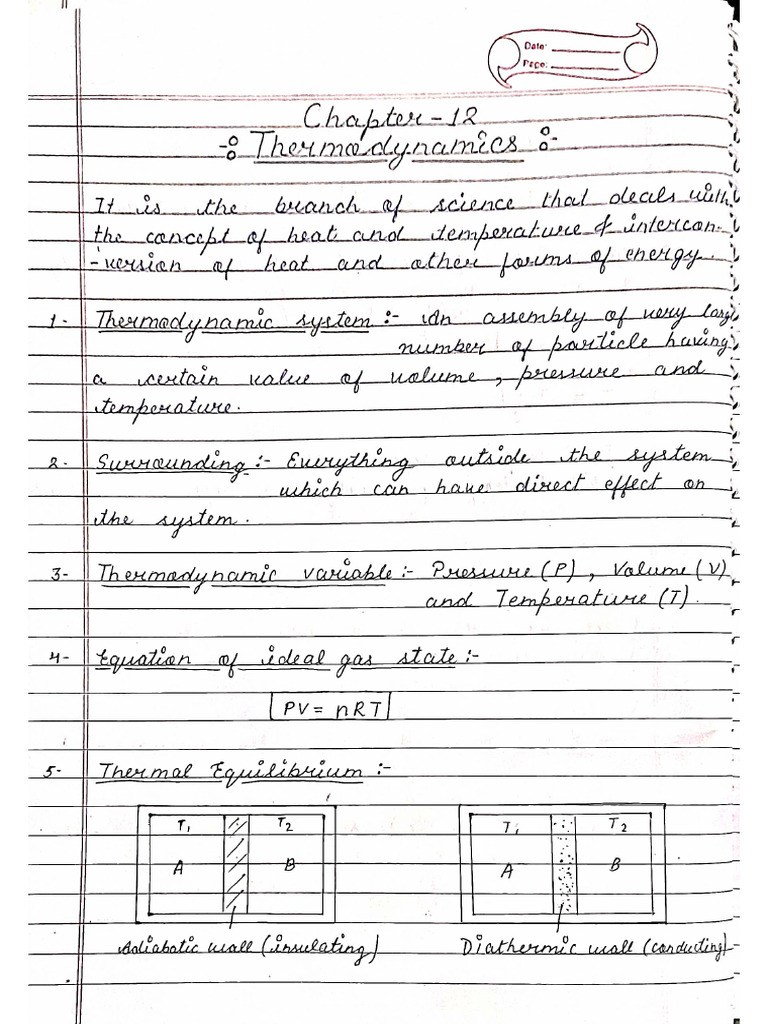 Date:
Page:
Chapter-12
Thermodynamics
It is the branch of science that deals with
the concept of heat and temperature & intercon-
-version of heat and other forms of energy.
1- Thermodynamic system :- An assembly of very large
number of particle having
a certain value of volume, pressure and
temperature.
2- Surrounding :- Everything outside the system
which can have direct effect on
the system.
3- Thermodynamic variable :- Pressure (P), Volume (V)
and Temperature (T).
4- Equation of ideal gas state :-
PV = nRT
5- Thermal Equilibrium :-
T1 T2 T1 T2
A B A B
Adiabatic wall (insulating) Diathermic wall (conducting)